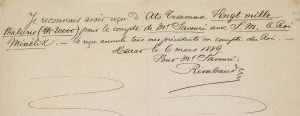 Je reconnais avoir reçu d'Ato Tasamma Vingt mille
thalaris (th 20000) pour le compte de Mr Savouré avec S. M. le Roi
Ménélik. — Le reçu annule tous mes précédents en compte du Roi. —
Harar le 6 mars 1889
Pour Mr Savouré:
Rimbaud